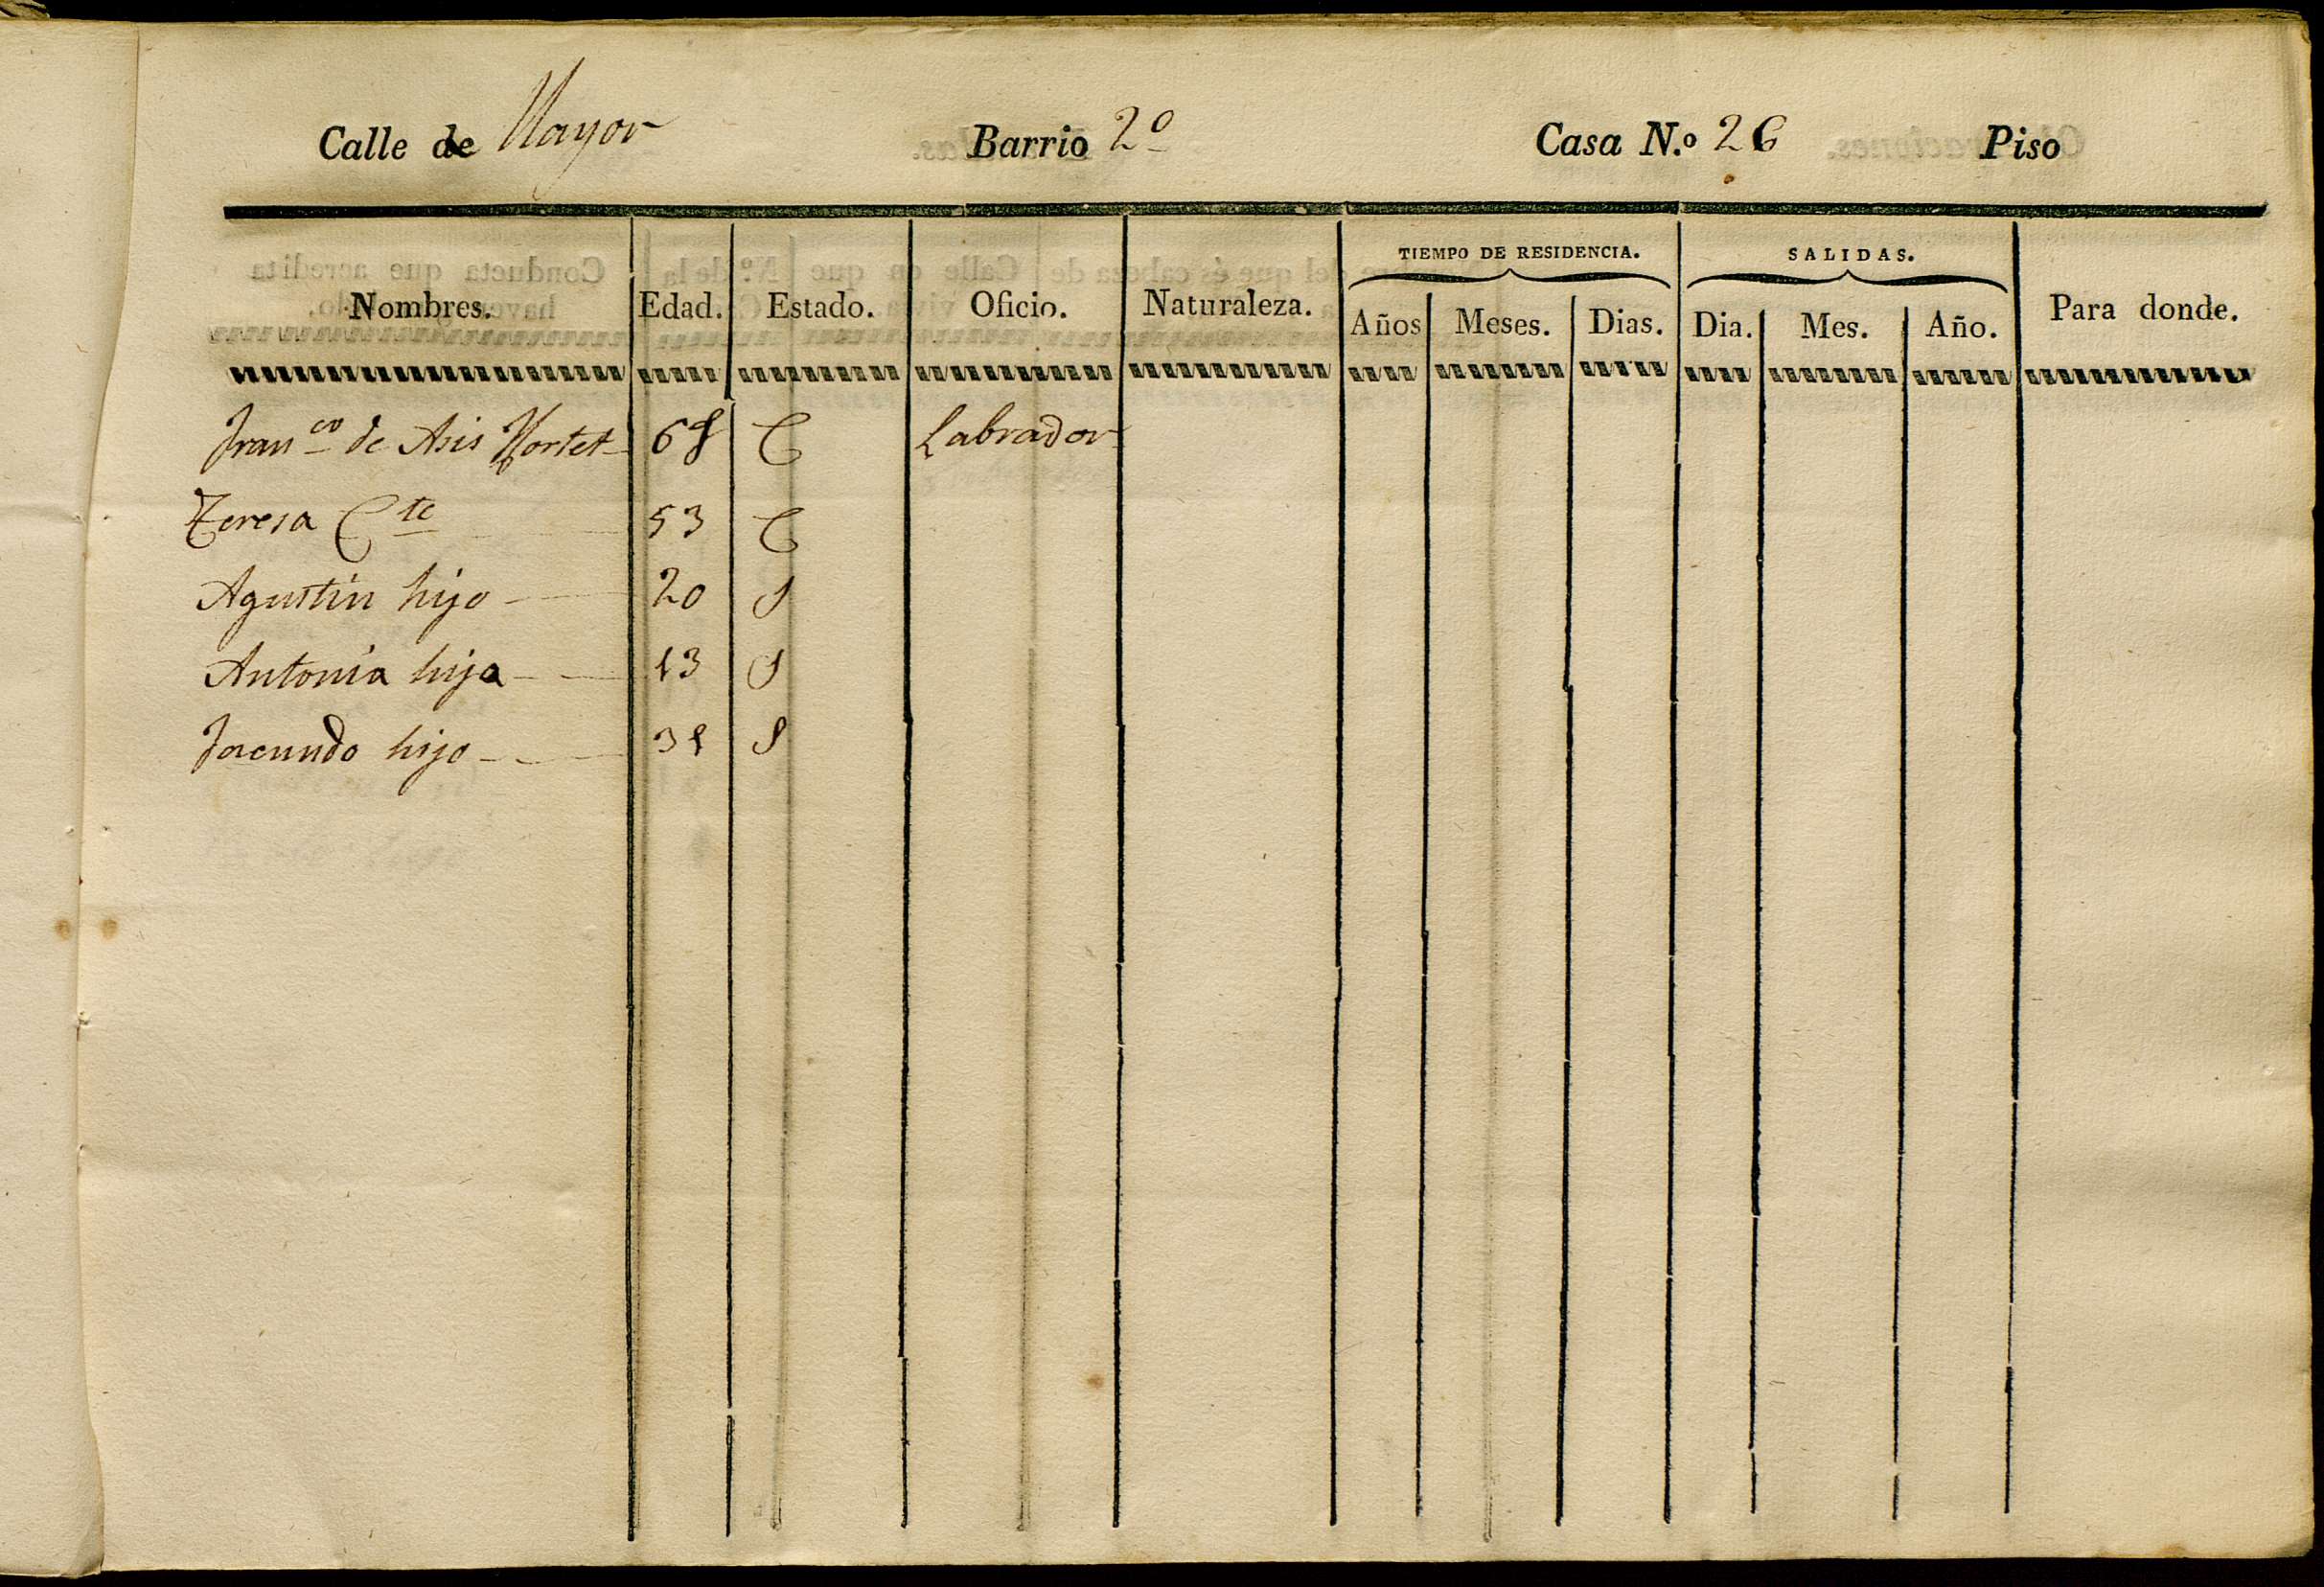 Calle de Mayor Barrio 2º Casa N.º 26 Piso
TIEMPO DE RESIDENCIA. SALIDAS.
Nombres. Edad. Estado. Oficio. Naturaleza. Años Meses. Dias. Dia. Mes. Año. Para donde.
Franco de Asis 68 C Labrador
Teresa Cte 53 C
Agustin hijo 20 S
Antonia hija 13 S
Facundo hijo S